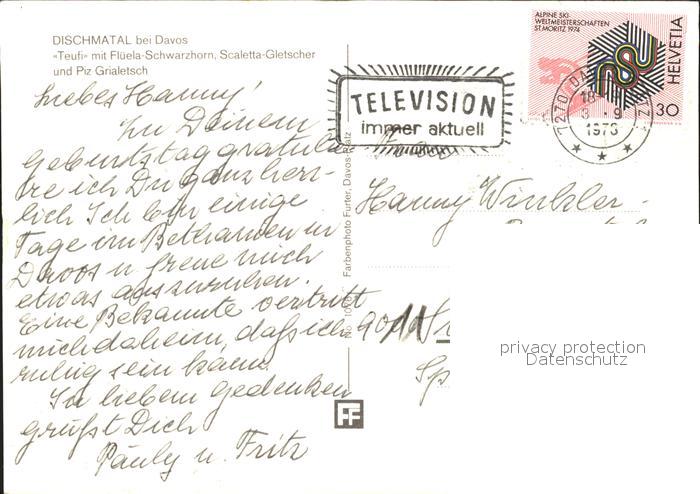 DISCHMATAL bei Davos
«Teufi» mit Flüela-Schwarzhorn, Scaletta-Gletscher
und Piz Grialetsch
Liebes Hanny!
Zu Deinem
Geburtstag gratulie
re ich Dir ganz herz-
lich Ich bin einige
Tage im Bethanien in
Davos u freue mich
etwas auszuruhen.
Eine Bekannte vertritt
mich daheim, daß ich
ruhig sein kann.
In liebem Gedenken
grüßt Dich
Pauly u. Fritz
Farbenphoto Furter, Davos-Platz
No
FF
TELEVISION
immer aktuell
ALPINE SKI-
WELTMEISTERSCHAFTEN
ST. MORITZ 1974
HELVETIA
30
7270 DA
18
3.-9
1973
Hanny Winkler -
Sp
privacy protection
Datenschutz